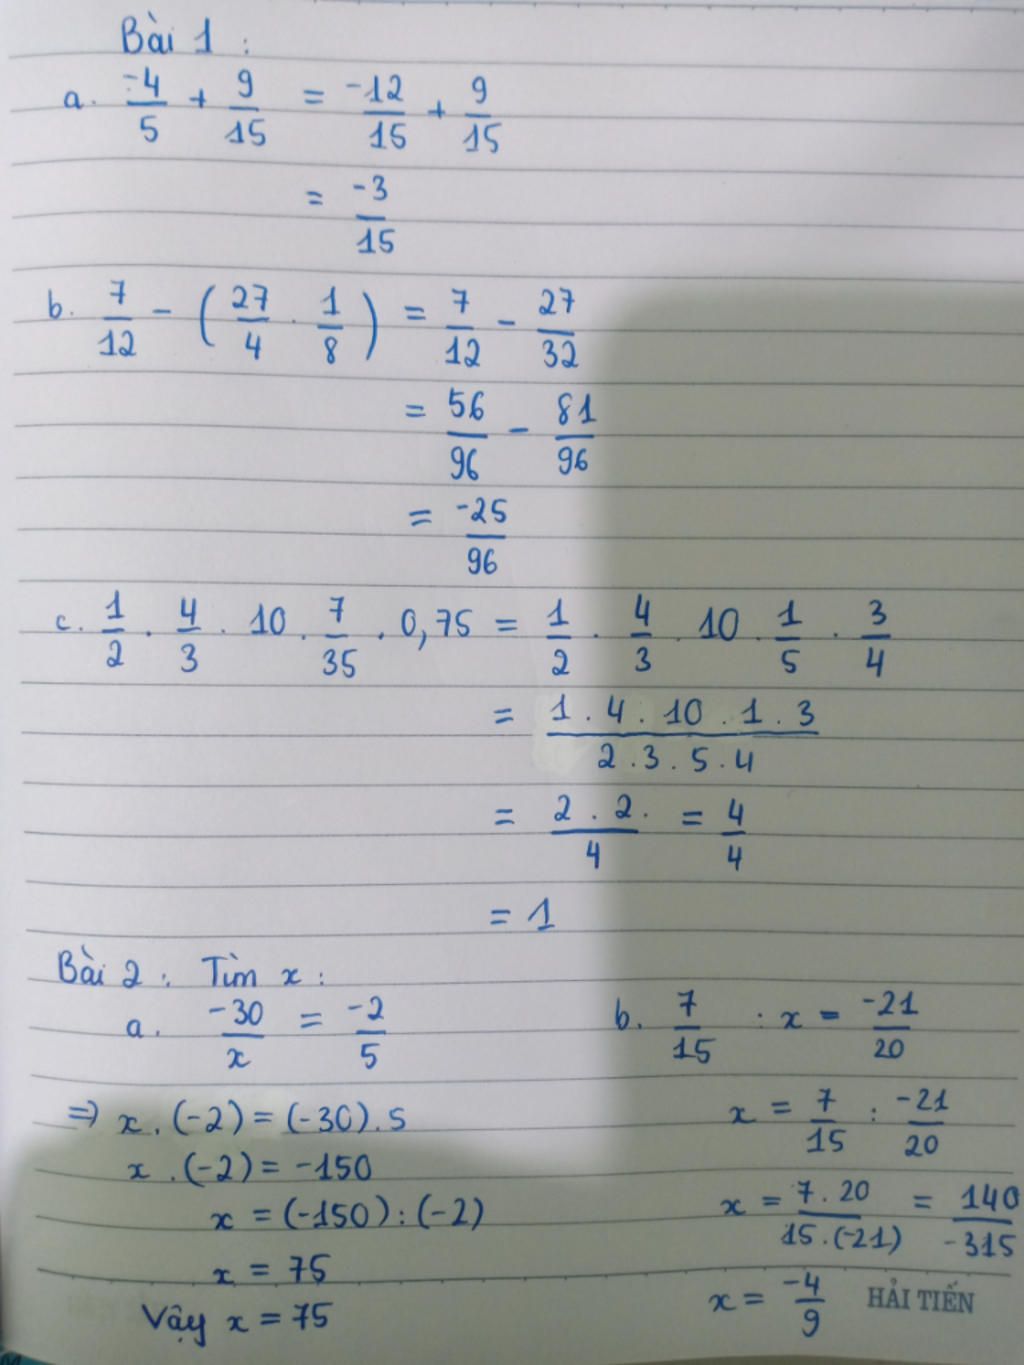 Bài 1 :
a. -4/5 + 9/15 = -12/15 + 9/15
= -3/15
b. 7/12 - (27/4 . 1/8) = 7/12 - 27/32
= 56/96 - 81/96
= -25/96
c. 1/2 . 4/3 . 10 . 7/35 . 0,75 = 1/2 . 4/3 . 10 . 1/5 . 3/4
= 1 . 4 . 10 . 1 . 3 / 2 . 3 . 5 . 4
= 2 . 2 . / 4 = 4/4
= 1
Bài 2 : Tìm x :
a. -30/x = -2/5
=> x . (-2) = (-30) . 5
x . (-2) = -150
x = (-150) : (-2)
x = 75
Vậy x = 75
b. 7/15 : x = -21/20
x = 7/15 : -21/20
x = 7 . 20 / 15 . (-21) = 140/-315
x = -4/9
HẢI TIẾN